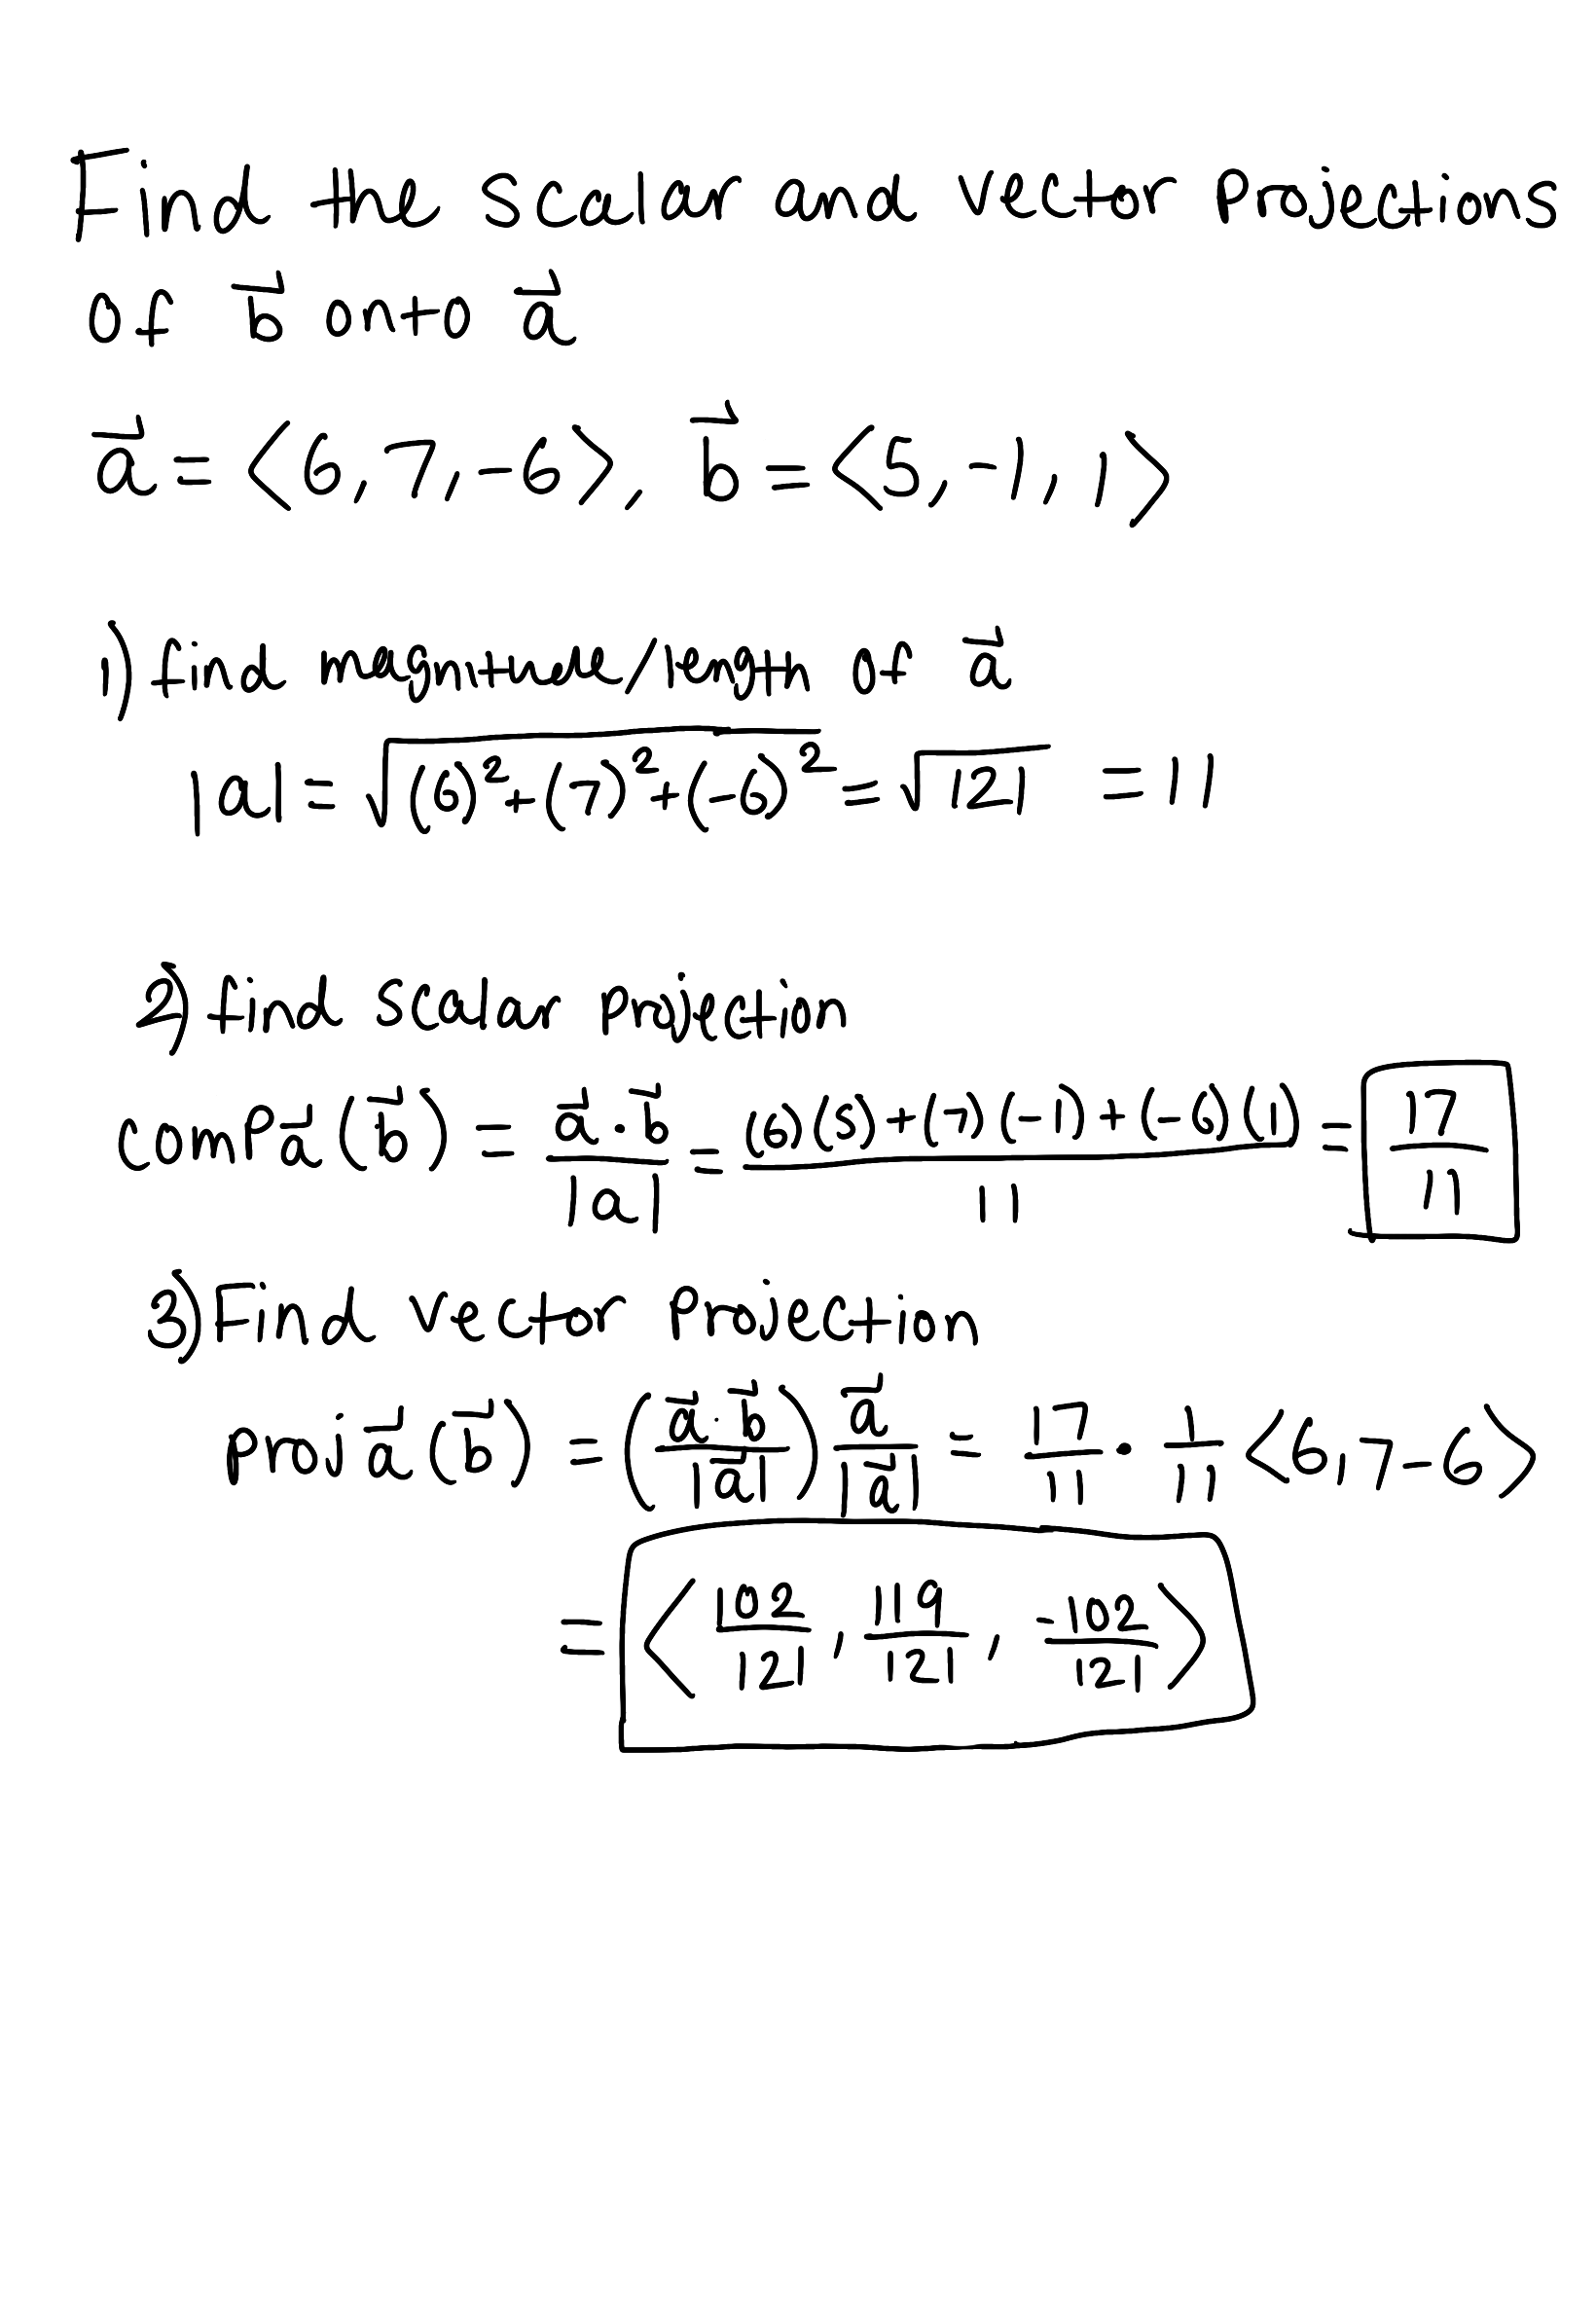 Find the scalar and vector projections
of b⃗ onto a⃗
a⃗ = <6,7,-6>, b⃗ = <5,-1,1>
1) find magnitude/length of a⃗
|a| = √((6)²+(7)²+(-6)²) = √121 = 11
2) find scalar projection
comp a⃗ (b⃗) = (a⃗·b⃗)/|a| = ((6)(5)+(7)(-1)+(-6)(1))/11 = 17/11
3) Find vector projection
proj a⃗ (b⃗) = (a⃗·b⃗/|a⃗|) a⃗/|a⃗| = 17/11 · 1/11 <6,7-6>
= <102/121, 119/121, -102/121>